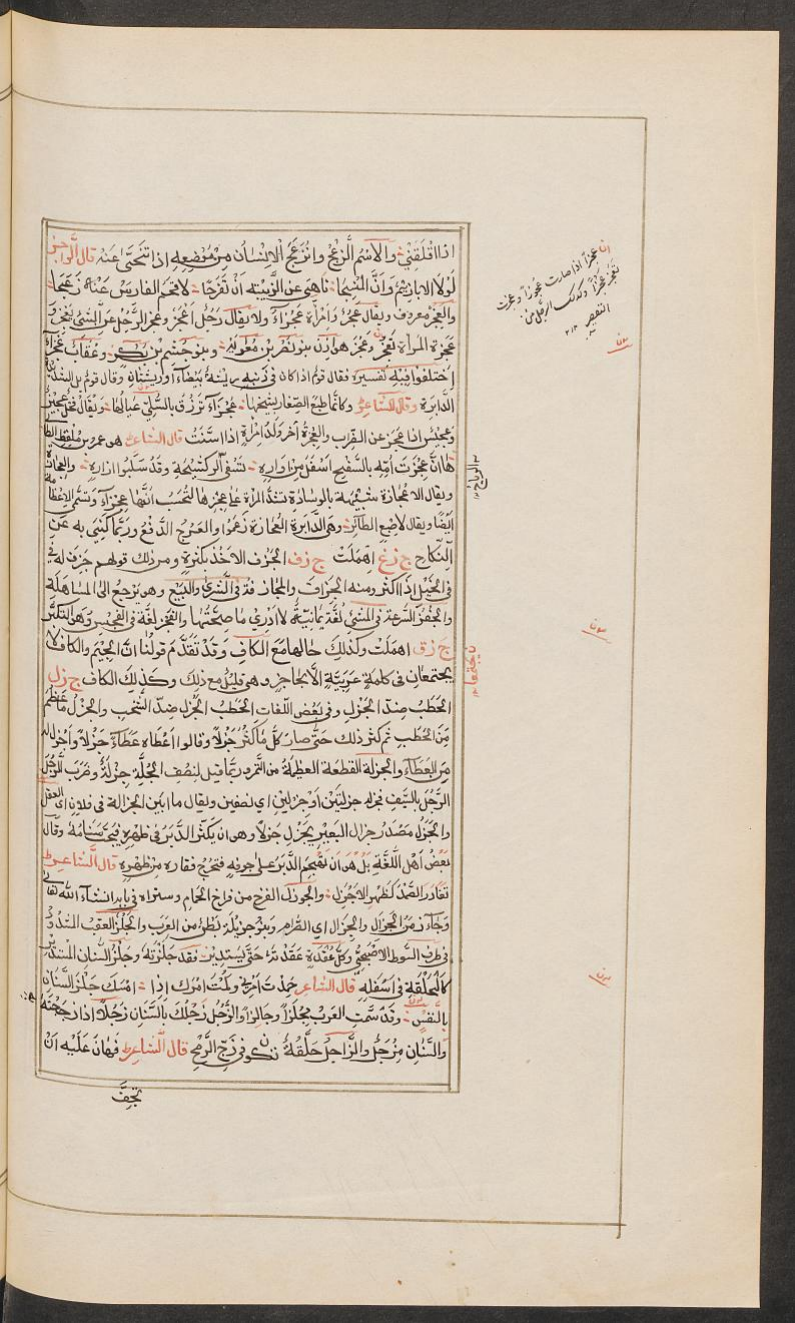 اذا اقلقني والاسم الزعج وانزعج الانسان من موضعه اذا تنحى عنه قال الراجز
لولا الاباريم وان المنسجا ناهى عن الزيبة ان تفرجا لاقحم الفارس عنه زعجا
والعجز معروف ويقال عجز وامراة عجزاء ولا يقال رجل اعجز وعجز الرجل عن الشيء يعجز و
عجزة المراة تعجز وعجز هوازن بنو نصر بن معوية وبنو جشم بن بكر وعقاب عجزاء
اختلفوا فيه تفسيره فقال قوم اذا كان في ذنبه ريشة بيضاء او ريشتان وقال قوم بل الشديدة
الدابرة وقال الشاعر وكانما طبع الصغار بشخصها عجزاء ترزق بالسلي عيالها ويقال فحل عجيز
وعجيس اذا عجز عن الضراب والعجزة آخر ولد امراة اذا اسنت قال الشاعر هو عمرو بن ملقط الطائي
ها ان عجزة امه بالسفح اسفل من اواره تسفى الركشيحيه وقد سلبوا ازاره والعجازة
ويقال الاعجازة شبيهة بالوسادة تشد المراة على عجزها لتحسب انها عجزاء وتسمى الاعظامة
ايضا ويقال لاصبع الطائر وهى الدابرة العجازة زعموا والعرج الدفع وربما كني به عن
النكاح ج زع اهملت ج زف الجزف الاخذ بكثرة ومن ذلك قولهم جزف له في
في الكيل اذا اكثر ومنه الجزاف والمجازفة في الشرى والبيع وهو يرجع الى المساهلة
والجفز السرعة في المشي لغة يمانية لا ادري ما صحتها والفجز لغة في الفجس وهو التكبر
ج زق اهملت وكذلك حالها مع الكاف وقد تقدم قولنا ان الجيم والكاف لا
يجتمعان في كلمة عربية الا بحاجز وهى قليل مع ذلك وكذلك الكاف ج زل
الحطب ضد الجزل وفي بعض اللغات الحطب الجزل ضد الشخب والجزل ما عظم
من الحطب ثم كثر ذلك حتى صار كل ما كثر جزلا وقالوا اعطاه عطاء جزلا واجزل له
من العطاء والجزلة القطعة العظيمة من التمر وربما قيل لنصف الجلة جزلة وضرب الرجل
الرجل بالسيف فجزله جزلتين او جزلين اي نصفين ويقال ما ابين الجزالة في فلان اي العقل
والجزل مصدر جزل البعير يجزل جزلا وهو ان يكثر الدبر في ظهره فيجب سنامه وقال
بعض اهل اللغة بل هو ان يهجم الدبر على جوفه فتخرج فقاره من ظهره قال الشاعر
تغادر الصمد كظهر الاجزل والجوزل الفرخ من فراخ الحمام وستراه في بابه انشاء الله تعالى
وجاء زمن الجزال والجزال اي الصرام وبنو جزيلة بطن من العرب والجلز العقب المشدود
في طرف السوط الاصبحي وكل عقدة عقدته حتى يستدير فقد جلزته وجلز السنان المستدير
كالحلقة في اسفله قال الشاعر حمدت امري ولمت امرك اذا امسك جلز السنان
بالنفس وقد سمت العرب مجلزا وجالزا والزجل زجلك بالسنان زجلا اذا زججته
والسنان مزجل والزاجل حلقة تكون في زج الرمح قال الشاعر فهان عليه ان
تجف
ان عجزا اذا صارت عجوزا وعجزت
تعجز عجزا وكذلك الرجل من
التقصير
ن يجتمعا